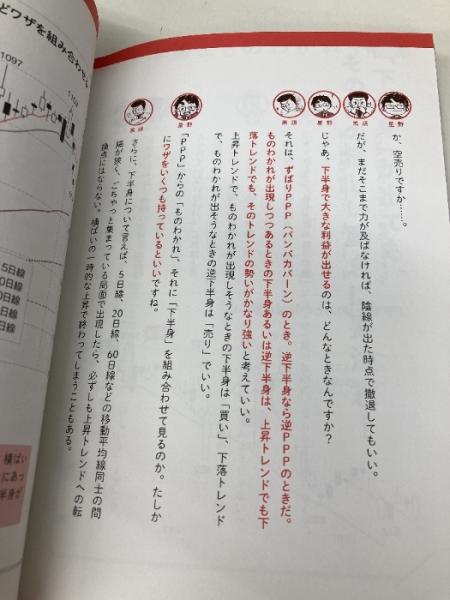 か、空売りですか……。
だが、まだそこまで力が及ばなければ、陰線が出た時点で撤退してもいい。
じゃあ、下半身で大きな利益が出せるのは、どんなときなんですか？
それは、ずばりＰＰＰ（パンパカパーン）のとき。逆下半身なら逆ＰＰＰのときだ。
ものわかれが出現しつつあるときの下半身あるいは逆下半身は、上昇トレンドでも下
落トレンドでも、そのトレンドの勢いがかなり強いと考えていい。
上昇トレンドで、ものわかれが出現しそうなときの下半身は「買い」、下落トレンド
で、ものわかれが出そうなときの逆下半身は「売り」でいい。
「ＰＰＰ」からの「ものわかれ」、それに「下半身」を組み合わせて見るのか。たしか
にワザをいくつも持っているといいですね。
さらに、下半身について言えば、５日線、20日線、60日線などの移動平均線同士の間
隔が狭く、ごちゃっと集まっている局面で出現したら、必ずしも上昇トレンドへの転
換点にはならない。横ばいの一時的な上昇で終わってしまうこともある。
星野
星野
星野
どワザを組み合わせる
1097
5日線
0日線
0日線
日線
日線
横ばい
にあっ
半身が